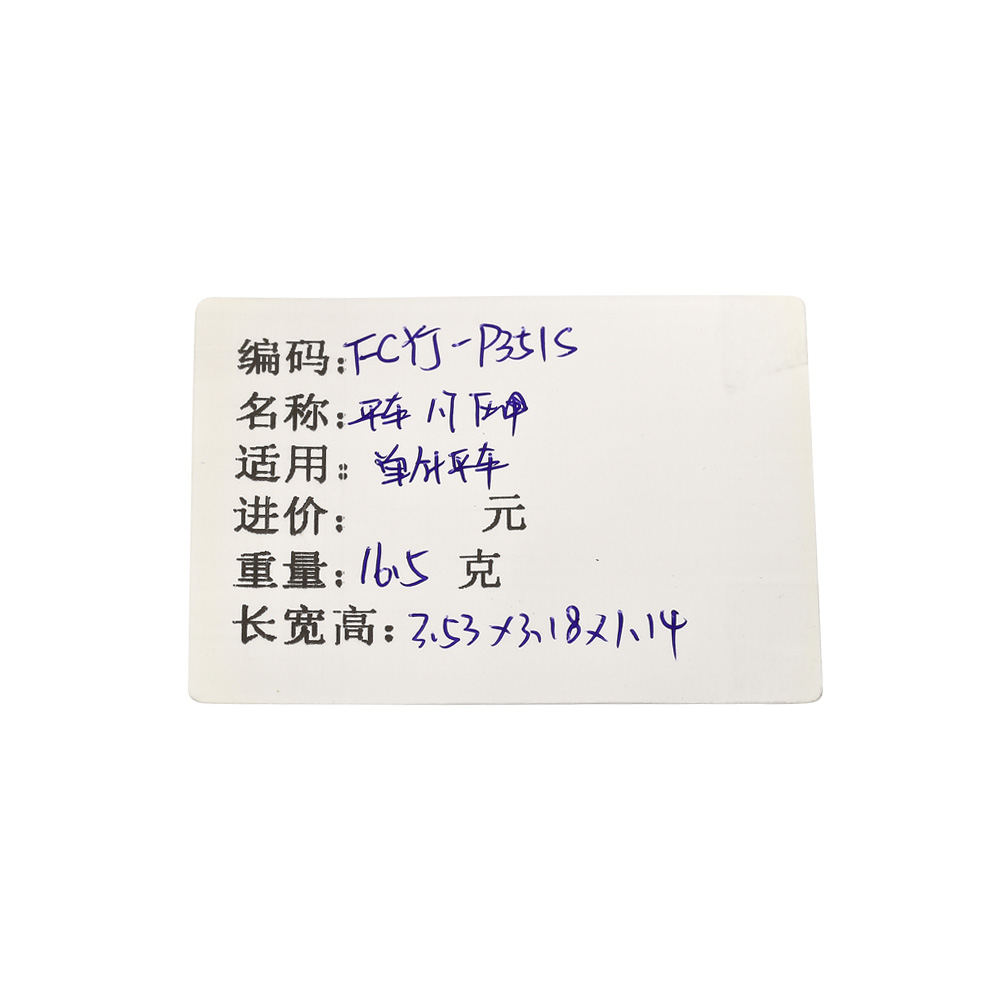 编码:FCYJ-P351S
名称:平车小压脚
适用:单针平车
进价: 元
重量:16.5 克
长宽高:3.53x3.18x1.14